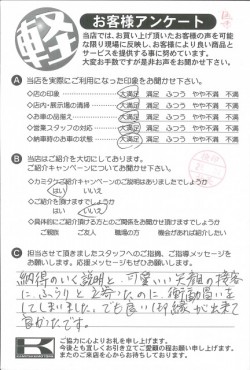 軽
お客様アンケート
当店では、お買い上げ頂いたお客様の声を可能
な限り現場に反映し、お客様により良い商品と
サービスを提供する事に努めています。
大変お手数ですが是非お声をお聞かせ下さい。
A 当店を実際にご利用になった印象をお聞かせ下さい。
◇店の印象 大満足 満足 ふつう やや不満 不満
◇店内・展示場の清掃 大満足 満足 ふつう やや不満 不満
◇お車の品揃え 大満足 満足 ふつう やや不満 不満
◇営業スタッフの対応 大満足 満足 ふつう やや不満 不満
◇納車時のお車の状態 大満足 満足 ふつう やや不満 不満
B 当店はご紹介を大切にしております。
ご紹介キャンペーンについてお聞かせ下さい。
◇カミタケご紹介キャンペーンのご説明はありましたでしょうか
はい いいえ
◇ご紹介を頂けますでしょうか
はい いいえ
◇具体的にご紹介頂ける方とのご関係をお聞かせ頂けますでしょうか
ご親族 ご友人 職場の方 機会があれば紹介したい
C 担当させて頂きましたスタッフへのご指摘、ご指導メッセージを
お願いします。応援メッセージもぜひお願いします。
納得のいく説明と、可愛いい笑顔の接客
に、ふらりと立寄ったのに、衝動買いを
してしまいました。でも良い御縁が出来て
良かったです。
K
ご協力に心よりお礼を申し上げます。
今後とも宜しくお引き立てご愛顧の程お願い申し上げます。
またのご来店を心からお待ちしております。